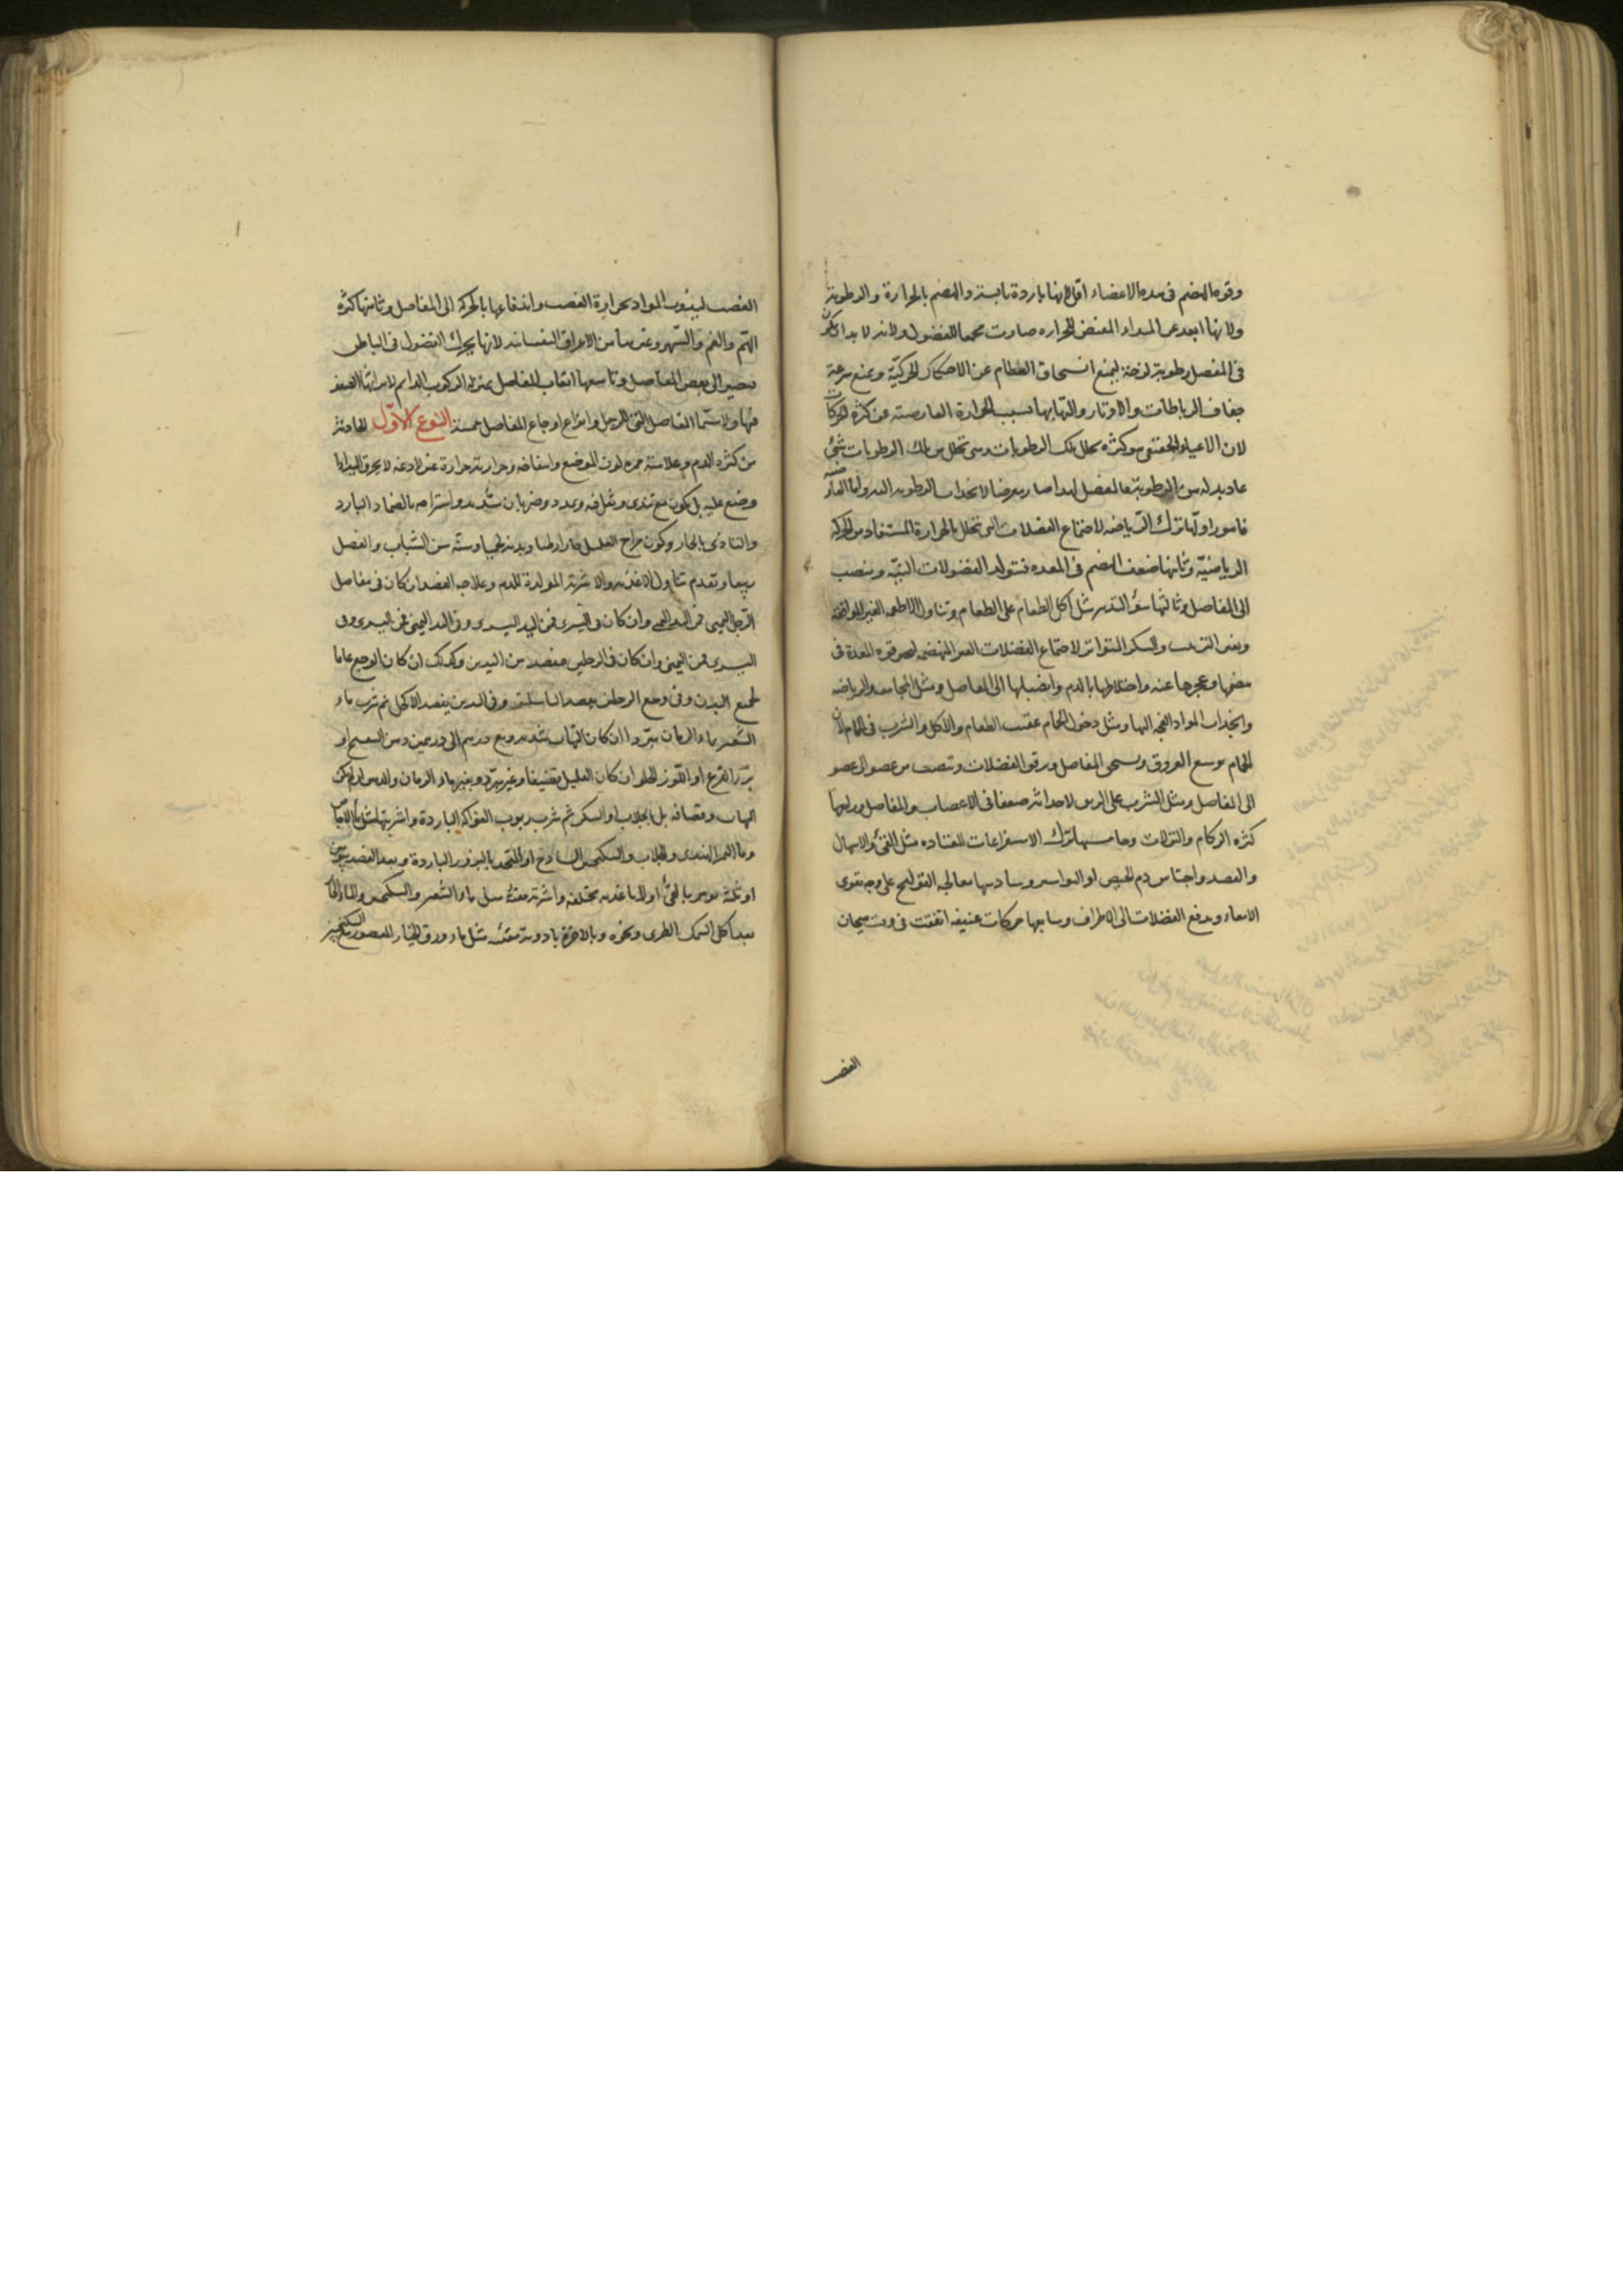 وقوه الهضم فى هذه الاعضاء اقل لانها باردة يابسة والهضم بالحرارة والرطوبة
ولانها ابعد عن المبداء المفيض للحراره صارت مجمعا للفضول ولانه لا بد ان يكون
فى المفصل رطوبة لزجة ليمنع انسحاق العظام عن الاحتكاك الحركتية ويمنع سرعة
جفاف الرباطات والاوتار والتهابها بسبب الحرارة العارضة عن كثرة الحركات
لان الاعياء الحقيقى هو كثره تحلل تلك الرطوبات ومتى تحلل من تلك الرطوبات شئ
عاد بدله من الرطوبة فالمفصل ابدا صار معرضا لانجذاب الرطوبة اليه واما الفاعلة
فامور اولها ترك الرياضه لاجتماع الفضلات التى تتحلل بالحرارة المستفاد من الحركة
الرياضيّة وثانيها ضعف الهضم فى المعده فتتولد الفضولات النيّة وينصب
الى المفاصل وثالثها سوء التدبير مثل اكل الطعام على الطعام وتناول الاطعمه الغير الموافقه
وبغير الترتيب والسكر المتواتر لاجتماع الفضلات الغير المنهضمه لضعف قوه المعدة فى
هضمها وعجزها عنه واختلاطها بالدم وانصبابها الى المفاصل ومثل المجامعه والرياضه
وانجذاب المواد الفجه اليها ومثل دخول الحمام عقيب الطعام والاكل والشرب فى الحمام لان
الحمام يوسع العروق ويسخى المفاصل ويرقق الفضلات وتنصب من عضو الى عضو
الى المفاصل ومثل الشرب على الريق لاحداثه ضعفا فى الاعصاب والمفاصل ورابعها
كثره الزكام والنزلات وخامسها ترك الاستفراغات المعتاده مثل القئ والاسهال
والفصد واحتباس دم الحيض او البواسير وسادسها معالجه القولنج على وجه يقوى
الامعاء ويدفع الفضلات الى الاطراف وسابعها حركات عنيفه اتفقت فى وقت هيجان
الغضب
الغضب ليذوب المواد بحرارة الغضب واندفاعها بالحركة الى المفاصل وثامنها كثره
الهم والغم والسهر وغيرها من الاعراض النفسانيه لانها يحرك الفضول فى الباطن
فيصير الى بعض المفاصل وتاسعها اتعاب المفاصل بمنزلة الركوب الدايم لايراثها الضعف
فيها ولا سيما المفاصل التى للرجل وانواع اوجاع المفاصل خمسة النوع الاول الحادثة
من كثره الدم وعلامته حمره لون الموضع وانتفاخه وحرارته حرارة غير لاذعه لا يحرق اليد اذا
وضع عليه بل يكون مع تندى ومثل فيه وتمدد وضربان شديد واستراحه بالضماد البارد
والتاذى بالحار وكون مزاج العليل حارا رطبا وبدنه لحيما وسنّه سن الشباب والفصل
ربيعا وتقدم تناول الاغذيه والاشربة المولدة للدم وعلاجه الفصد ان كان فى مفاصل
الرجل اليمنى فمن اليد اليمنى وان كان فى اليسرى فمن اليد اليسرى وفى اليد اليمنى فمن اليسرى وفى
اليسرى فمن اليمنى وان كان فى الرجلين فيفصد من اليدين وكذلك ان كان الوجع عاما
لجميع البدن وفى وجع الرجلين يفصد الباسليق وفى اليدين يفصد الاكحل ثم شرب ماء
الشعير بماء الرمان مبّردا ان كان التهاب شديد ومع درهم الى درهمين دهن البنفسج او
بزر القرع او اللوز الحلو ان كان العليل قضيفا وغير مبّرد وبغير ماء الرمان والدهن ان لم يكن
التهاب وقضافه بل بجلاب او السكر ثم شرب ربوب الفواكه الباردة واشربتها مثل ماء الاجاص
وماء التمر الهندى والجلاب والسكنجبين الساذج او المتخذ بالبزور الباردة وبعد الفصد بيومين
او ثلثه يومر بالقئ اولا باغذيه مختلفه واشربة مقئة مثل ماء الشعير والسكنجبين والماء الحار
بعد اكل السمك الطرى ونحوه وبالاخرة بادوية مقئه مثل ماء ورق الخيار المعصور مع السكنجبين